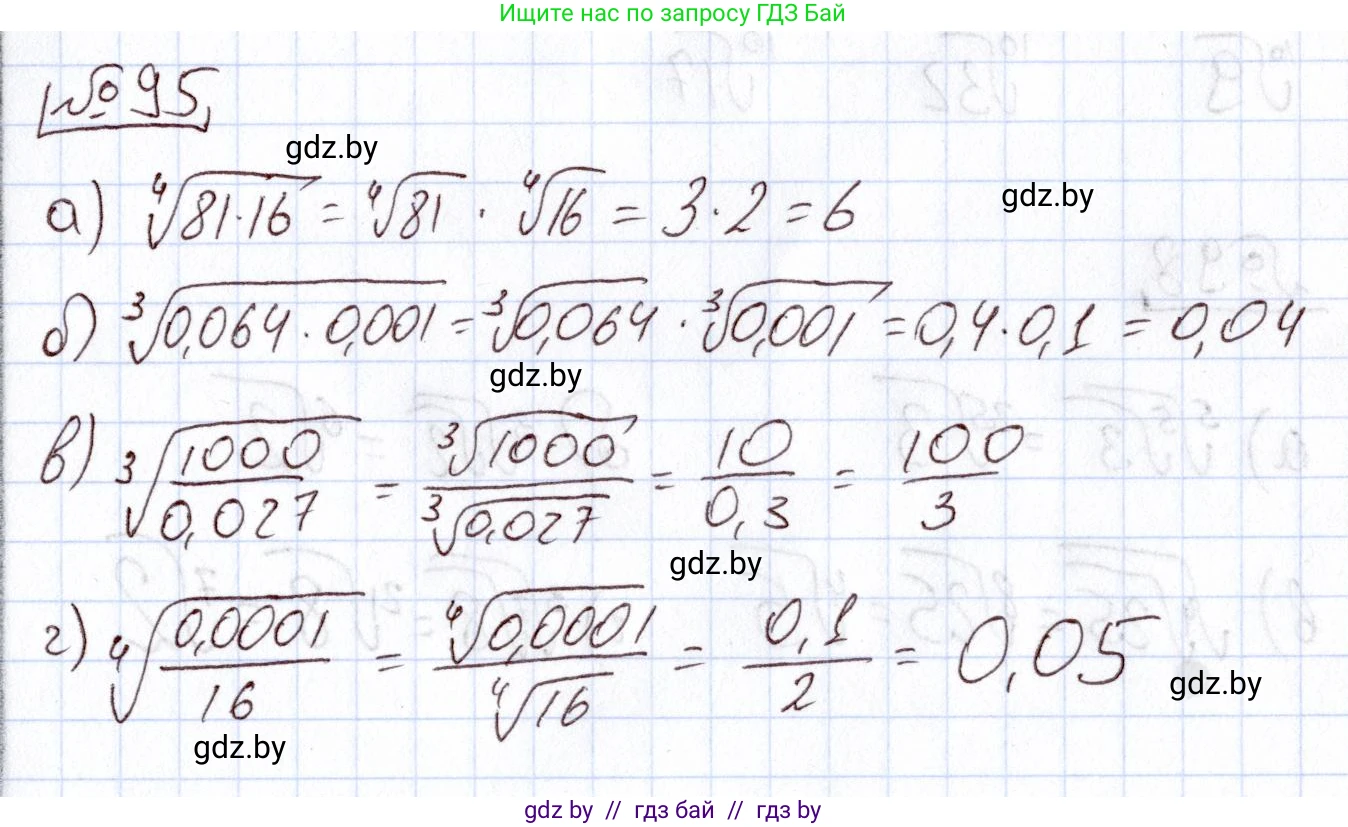 Ищите нас по запросу ГДЗ Бай
№95
gdz.by
а) ⁴√(81·16) = ⁴√81 · ⁴√16 = 3·2 = 6
gdz.by
б) ³√(0,064·0,001) = ³√0,064 · ³√0,001 = 0,4·0,1 = 0,04
gdz.by
в) ³√(1000/0,027) = ³√1000/³√0,027 = 10/0,3 = 100/3
gdz.by
г) ⁴√(0,0001/16) = ⁴√0,0001/⁴√16 = 0,1/2 = 0,05
gdz.by
gdz.by
gdz by // гдз бай // гдз by